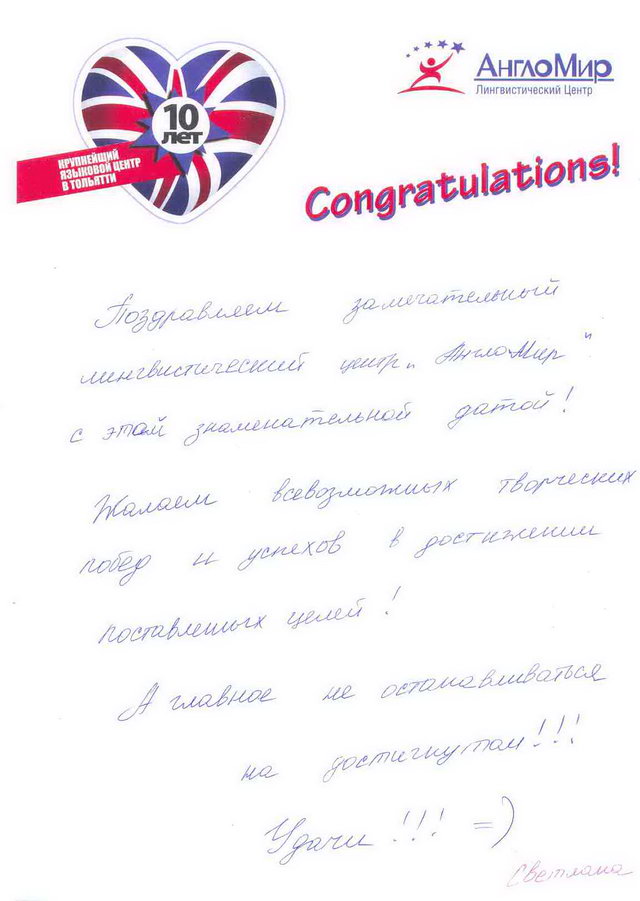 10
лет
КРУПНЕЙШИЙ
ЯЗЫКОВОЙ ЦЕНТР
В ТОЛЬЯТТИ
АнглоМир
Лингвистический Центр
Congratulations!
Поздравляем замечательный
лингвистический центр „АнглоМир"
с этой знаменательной датой!
Жалаем всевозможных творческих
побед и успехов в достижении
поставленных целей!
А главное не останавливаться
на достигнутом!!!
Удачи!!! =)
Светлана